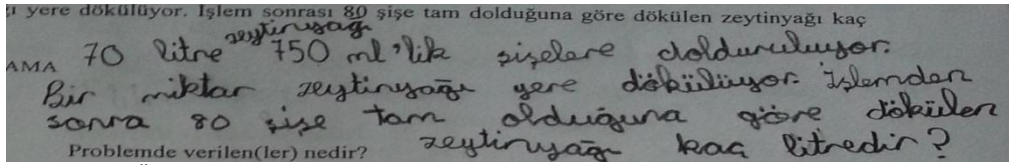 yere dökülüyor. İşlem sonrası 80 şişe tam dolduğuna göre dökülen zeytinyağı kaç
70 litre zeytinyağı 750 ml'lik şişelere dolduruluyor.
AMA
Bir miktar zeytinyağı yere dökülüyor. İşlemden
sonra 80 şişe tam olduğuna göre dökülen
zeytinyağı kaç litredir?
Problemde verilen(ler) nedir?